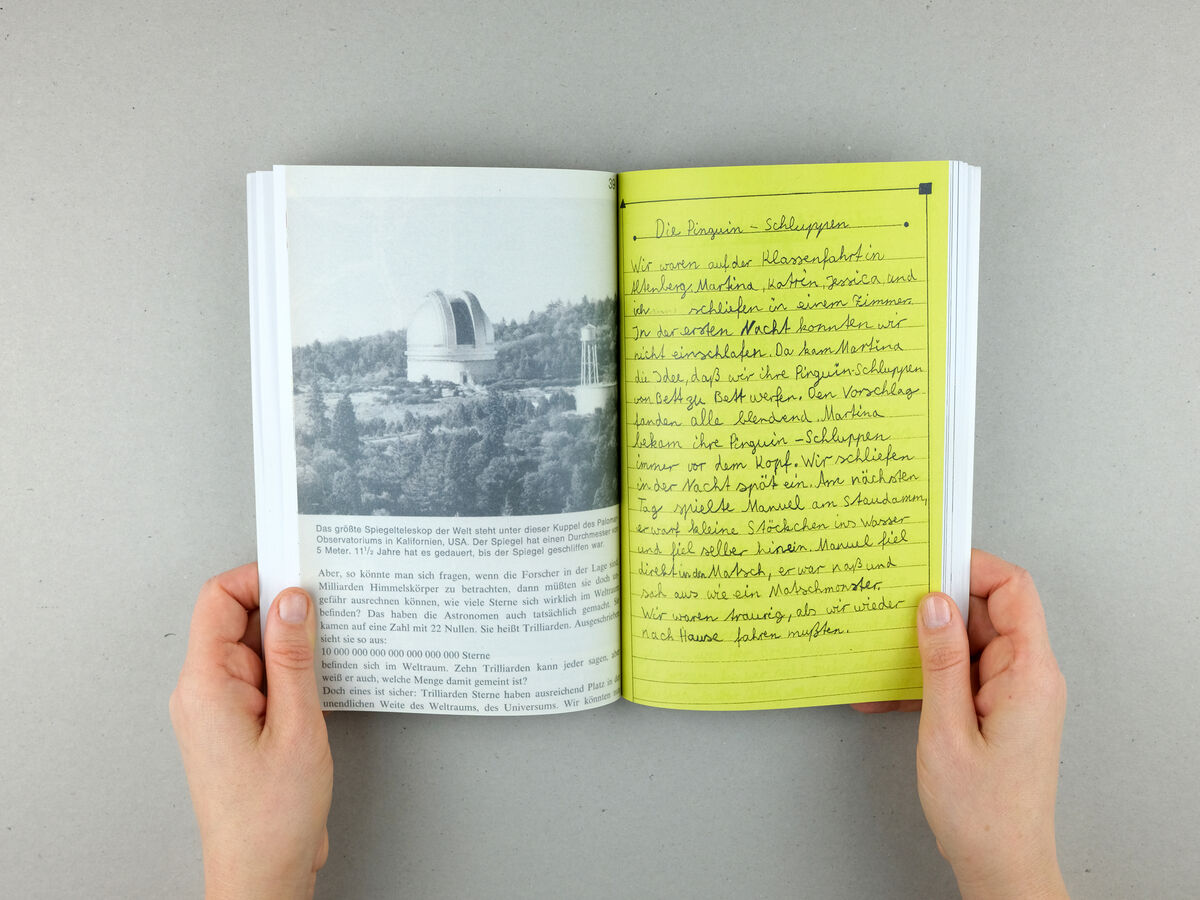 39
Das größte Spiegelteleskop der Welt steht unter dieser Kuppel des Paloma
Observatoriums in Kalifornien, USA. Der Spiegel hat einen Durchmesser von
5 Meter. 11½ Jahre hat es gedauert, bis der Spiegel geschliffen war.
Aber, so könnte man sich fragen, wenn die Forscher in der Lage sind
Milliarden Himmelskörper zu betrachten, dann müßten sie doch
gefähr ausrechnen können, wie viele Sterne sich wirklich im Weltrau
befinden? Das haben die Astronomen auch tatsächlich gemacht. Sie
kamen auf eine Zahl mit 22 Nullen. Sie heißt Trilliarden. Ausgeschrieben
sieht sie so aus:
10 000 000 000 000 000 000 000 Sterne
befinden sich im Weltraum. Zehn Trilliarden kann jeder sagen, aber
weiß er auch, welche Menge damit gemeint ist?
Doch eines ist sicher: Trilliarden Sterne haben ausreichend Platz in der
unendlichen Weite des Weltraums, des Universums. Wir könnten
Die Pinguin – Schluppen
Wir waren auf der Klassenfahrt in
Altenberg. Martina, Katrin, Jessica, und
ich schliefen in einem Zimmer.
In der ersten Nacht konnten wir
nicht einschlafen. Da kam Martina
die Idee, daß wir ihre Pinguin-Schluppen
von Bett zu Bett werfen. Den Vorschlag
fanden alle blendend. Martina
bekam ihre Pinguin – Schluppen
immer vor dem Kopf. Wir schliefen
in der Nacht spät ein. Am nächsten
Tag spielte Manuel am Staudamm,
er warf kleine Stöckchen ins Wasser
und fiel selber hinein. Manuel fiel
direkt in den Matsch, er war naß und
sah aus wie ein Matschmonster.
Wir waren traurig, als wir wieder
nach Hause fahren mußten.